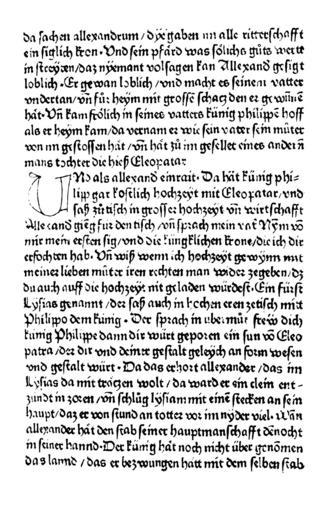 da sachen allexandrum/ dye gaben im alle ritterschafft
ein siglich kron · Und sein pfärd was sölichs gůts wertt
in streytzen/ daz nyemant volsagen kan Allexand gesigt
loblich · Er gewan loblich/ und macht es seinem vatter
undertan/ uñ für heym mit grosse schatz den er gewunē
hät · Uñ kam frölich in seines vatters künig philippen hoff
als er heym kam/ da vernam er wie sein vater sein můter
von im gestossen hät/ uñ hät zů im gesellet eines andern
mans tochter die hieß Cleopatar
UNd als alexand einrait · Da hät künig phi-
lipp gar kostlich hochzeyt mit Cleopatar/ und
saß zů tisch in grosser hochzeyt uñ wirtschafft
Allexand gieng für den tisch/ uñ sprach mein vat Nym vō
mir mein ersten sig/ und die küngklichen krone/ die ich dir
erfochten hab · Uñ wiß wenn ich hochzeyt gewynn mit
meiner lieben můter iren rechten man wider zegeben/ dz
du auch auff die hochzeyt nit geladen würdest · Ein fürst
Lysias genannt/ der saß auch in hochen eren ze tisch mit
Philipo dem künig · Der sprach in übermůt frew dich
künig Philippe dann dir würt geporen ein sun vō Cleo
patra/ der dir und deiner gestalt geleych an form wesen
und gestalt würt · Da das erhort alexander/ das im
Lysias da mit tratzen wolt/ da ward er ein clein ent-
zundt in zoren/ uñ schlůg lysiam mit einē stecken an sein
haupt/ daz er von stund an totter vor im nyder viel · Wañ
allexander hät den stab seiner hauptmanschafft dēnocht
in seiner hannd · Der künig hät noch nicht über genomen
das lannd/ das er bezwungen hatt mit dem selben stab